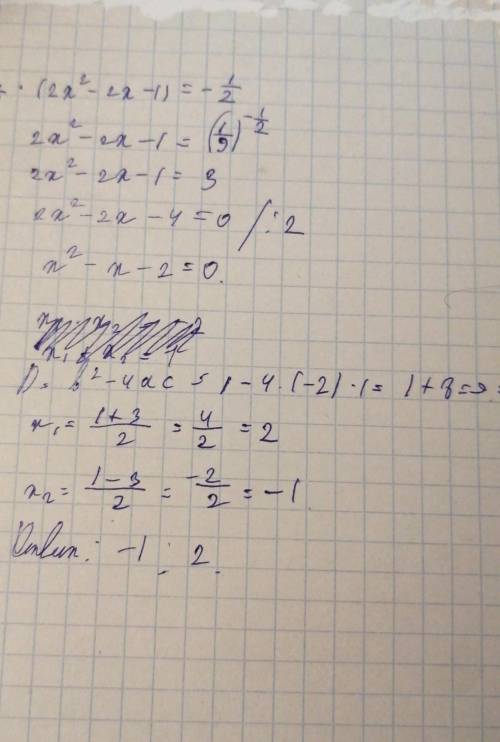 · (2x² - 2x - 1) = - 1/2
2x² - 2x - 1 = (1/9)^(-1/2)
2x² - 2x - 1 = 3
2x² - 2x - 4 = 0 /: 2
x² - x - 2 = 0.
D = b² - 4ac = 1 - 4 · (-2) · 1 = 1 + 8 = 9
x₁ = (1+3)/2 = 4/2 = 2
x₂ = (1-3)/2 = -2/2 = -1.
Ответ: -1 ; 2.